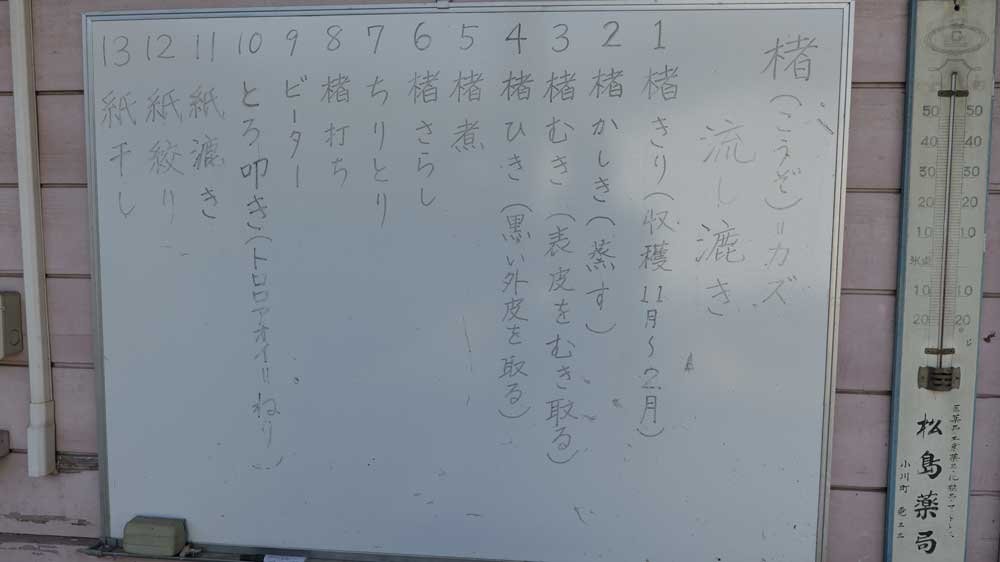 楮(こうぞ)=カズ
流し漉き
1 楮きり(収穫11月~2月)
2 楮かしき(蒸す)
3 楮むき(表皮をむき取る)
4 楮ひき(黒い外皮を取る)
5 楮煮
6 楮さらし
7 ちりとり
8 楮打ち
9 ビーター
10 とろ叩き(トロロアオイ=ねり)
11 紙漉き
12 紙絞り
13 紙干し
C
50 50
40 40
30 30
20 20
10 10
氷点
10 10
20 20
松島薬局
小川町